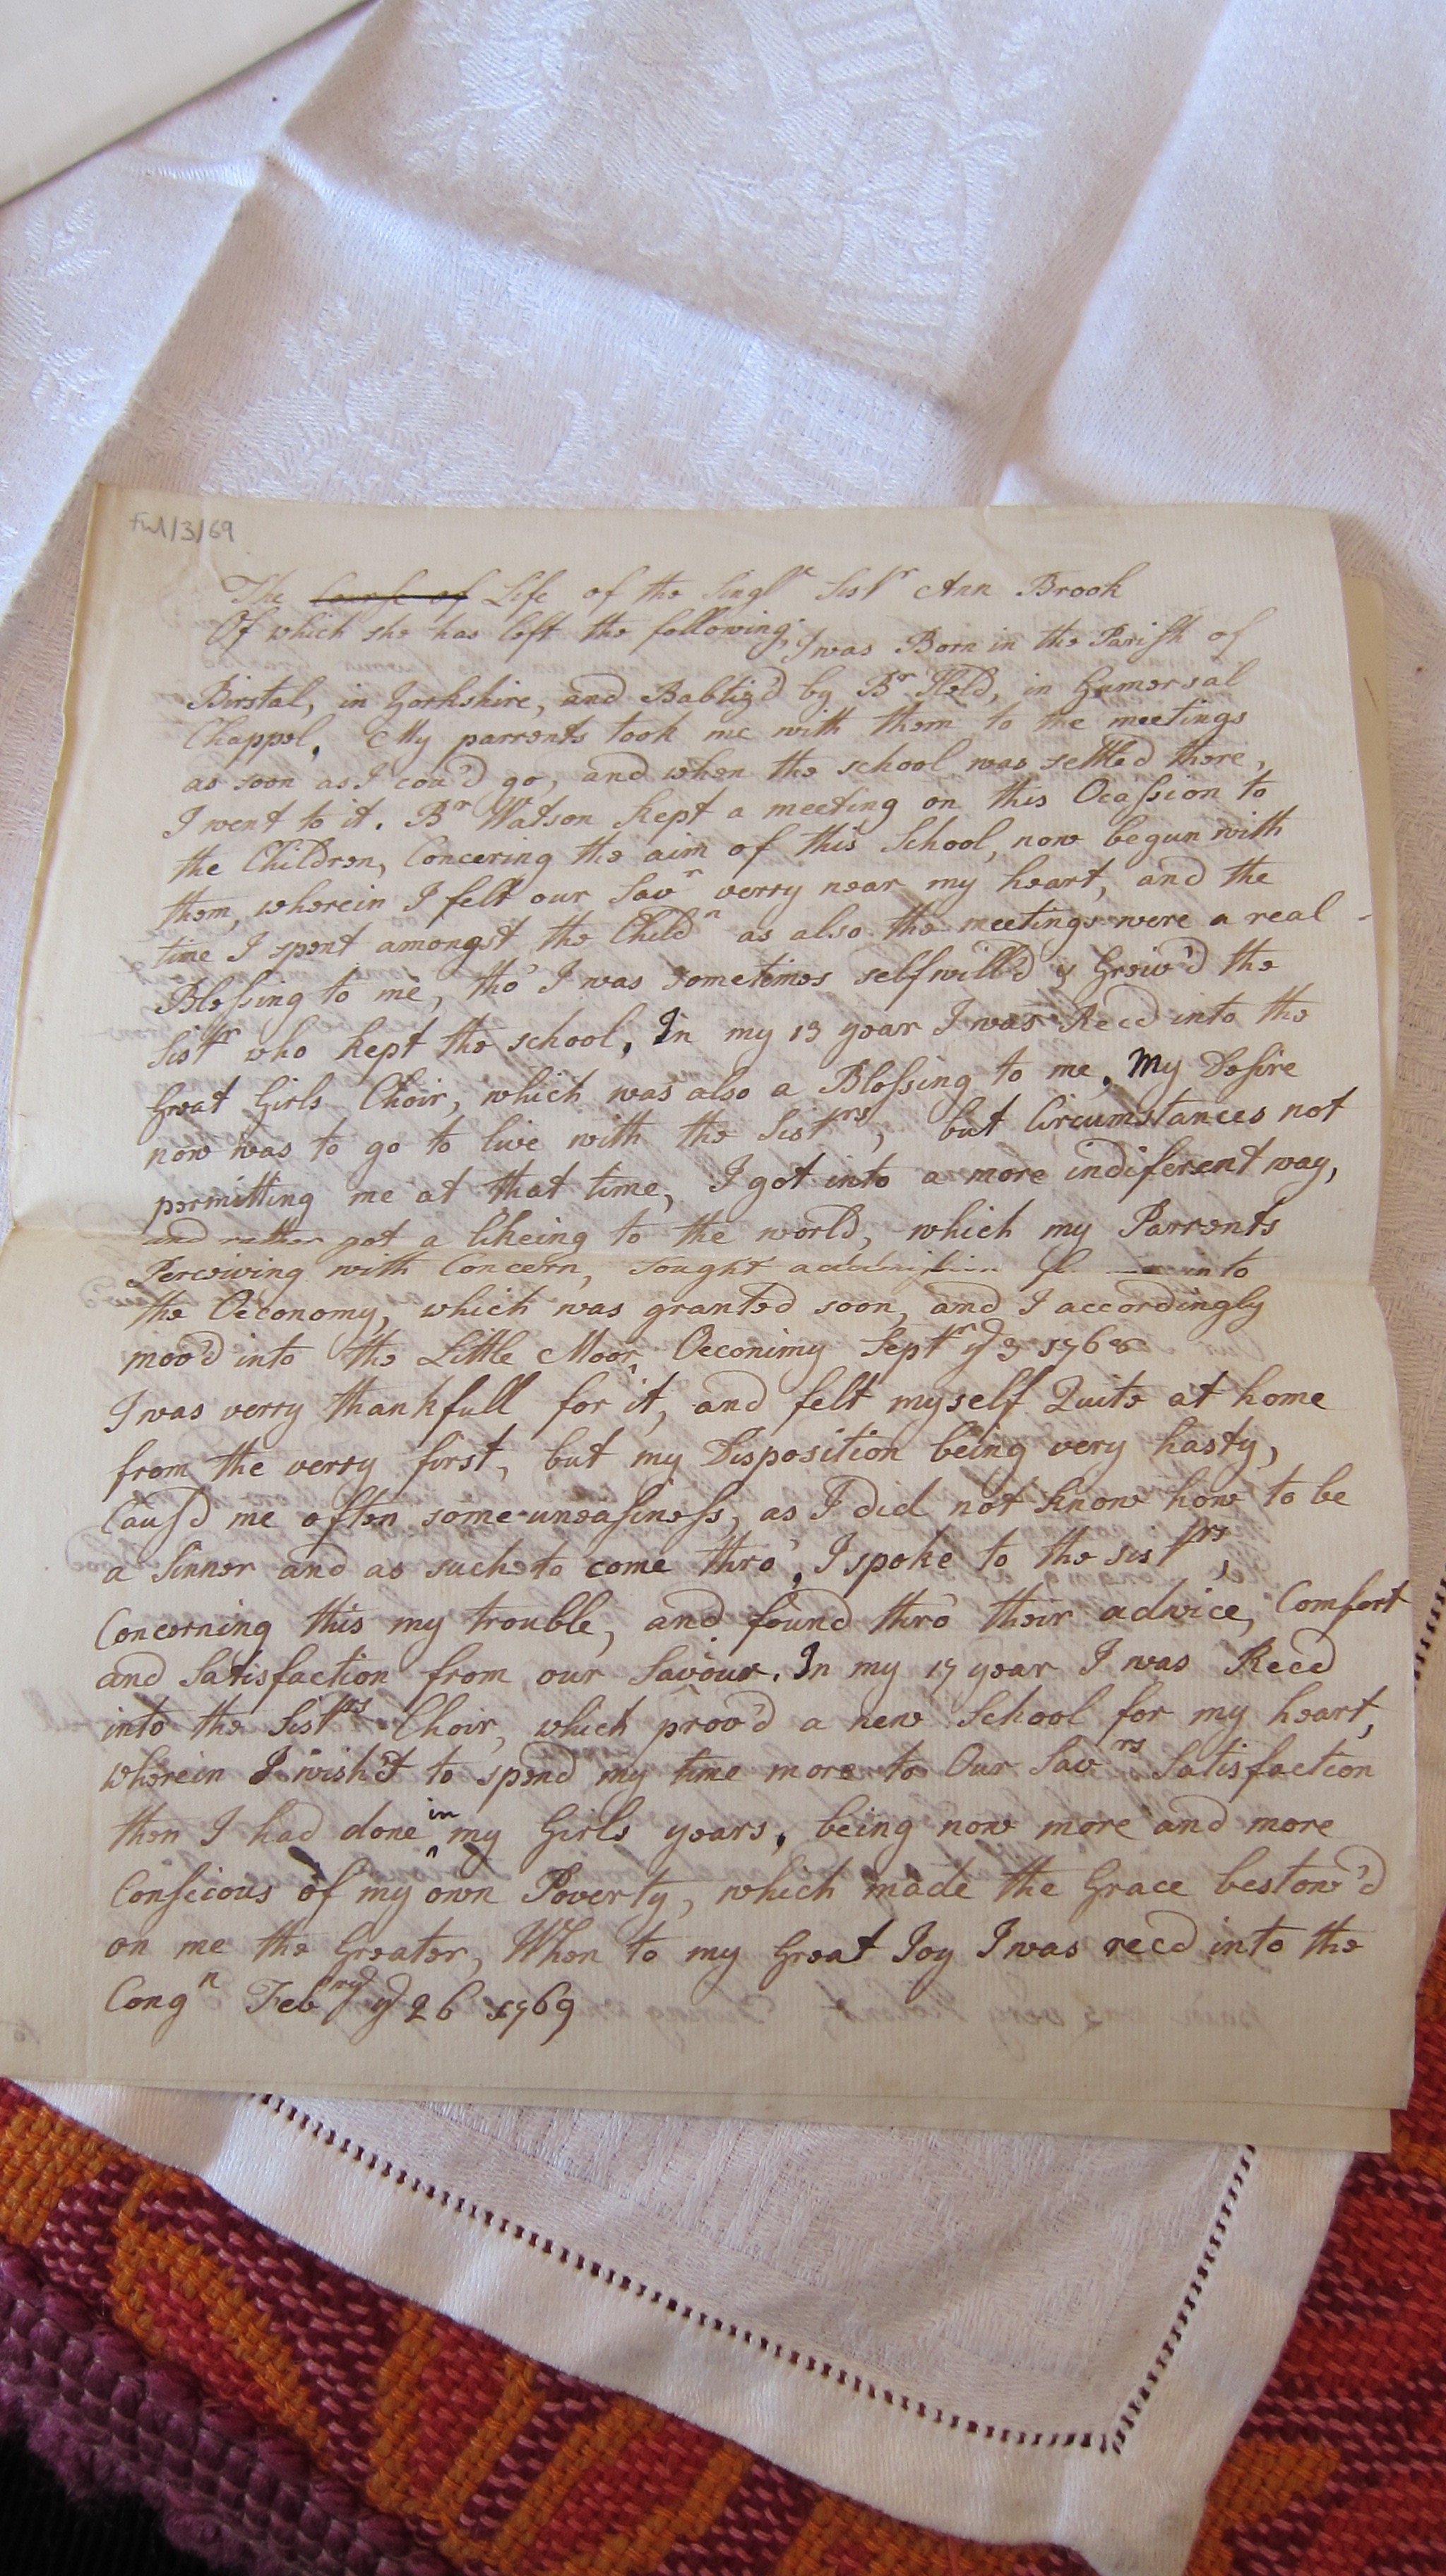 Ful/3/69
The Course of Life of the Singl^e Sist^r Ann Brook
Of which she has left the following; I was Born in the Parish of
Birstal, in Yorkshire, and Babtiz'd by B^r Held, in Gumersal
Chappel. My parrents took me with them to the meetings
as soon as I cou'd go, and when the school was settled there,
I went to it. B^r Watson kept a meeting on this Ocassion to
the Children, Concering the aim of this School, now begun with
them, wherein I felt our Sav^r verry near my heart, and the
time I spent amongst the Child^n as also the meetings were a real
Blessing to me, tho' I was sometimes selfwill'd & Greiv'd the
Sist^r who kept the school. In my 13 year I was Recd into the
Great Girls Choir, which was also a Blessing to me. My Desire
now was to go to live with the Sist^rs, but Circumstances not
permitting me at that time, I got into a more indiferent way,
and rather got a likeing to the world, which my Parrents
Perceiving with Concern, sought into
the Oeconomy, which was granted soon, and I accordingly
moov'd into the Little Moor Oeconimy Sept^r y^e 3 1768
I was verry thankfull for it, and felt myself Quite at home
from the verry first, but my Disposition being very hasty,
Caus'd me often some uneasiness, as I did not know how to be
a Sinner and as such to come thro'. I spoke to the sist^rs,
Concerning this my trouble, and found thro' their advice, Comfort
and Satisfaction from our Saviour. In my 17 year I was Recd
into the Sist^rs Choir, which proov'd a new School for my heart,
wherein I wish'd to spend my time more to Our Sav^rs Satisfaction
then I had done ^in my Girls years, being now more and more
Conscious of my own Poverty, which made the Grace bestow'd
on me the Greater, When to my Great Joy I was recd into the
Cong^n Feb^ry y^e 26 1769